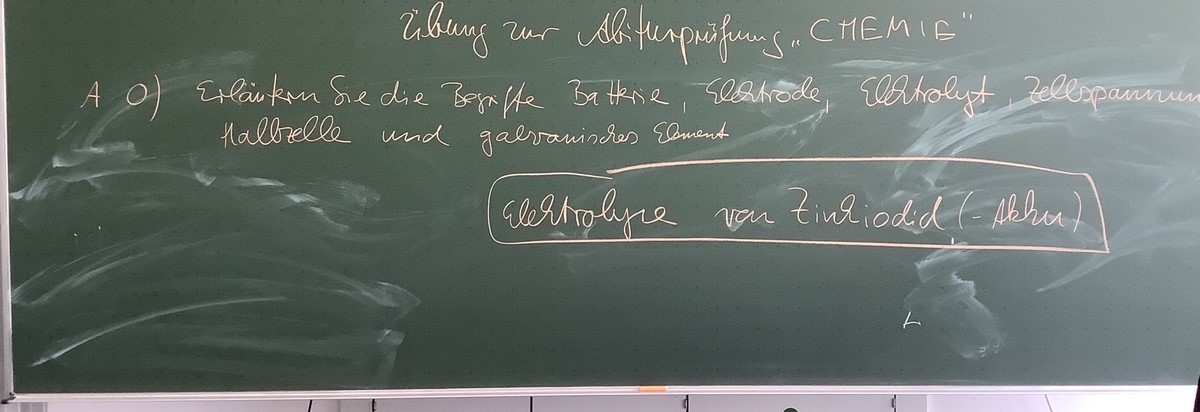 Übung zur Abiturprüfung „CHEMIE"
A 0) Erläutern Sie die Begriffe Batterie, Elektrode, Elektrolyt, Zellspannun
Halbzelle und galvanisches Element
Elektrolyse von Zinkiodid (-Akku)